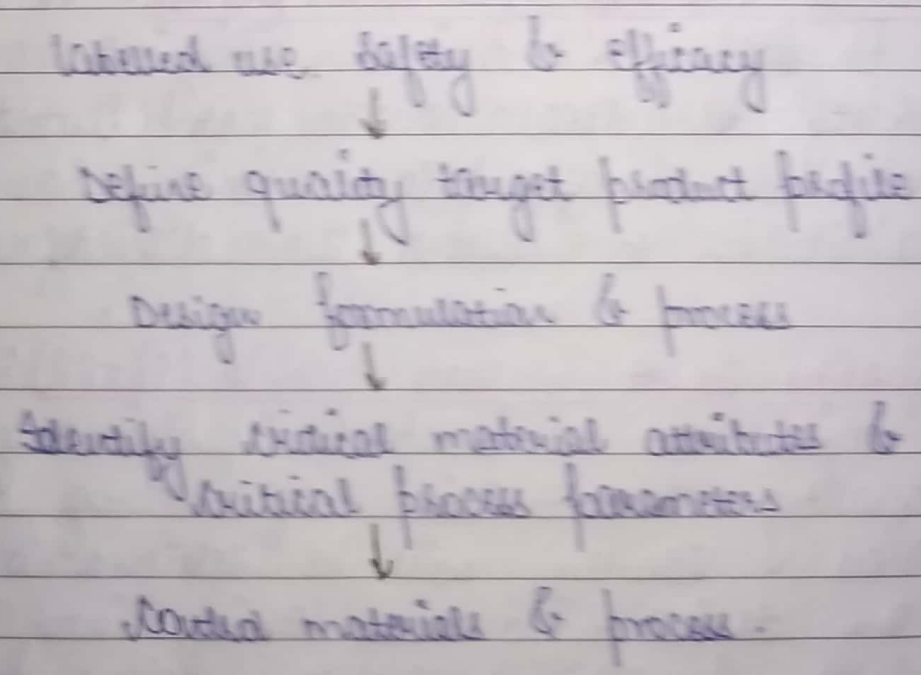 Labelled use safety & efficacy
↓
Define quality target product profile
↓
Design formulation & process
↓
Identify critical material attributes &
critical process parameters
↓
Control materials & process.